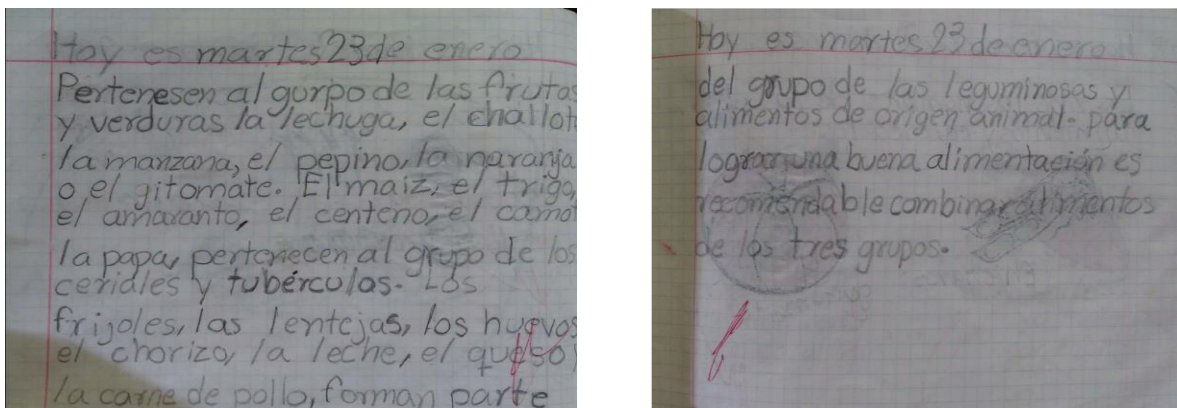 Hoy es martes 23 de enero
Pertenesen al gurpo de las frutas
y verduras la lechuga, el challot
la manzana, el pepino, la naranja
o el gitomate. El maiz, el trigo,
el amaranto, el centeno, el camot
la papa, pertenecen al grupo de los
ceriales y tubérculos. Los
frijoles, las lentejas, los huevos
el chorizo, la leche, el queso
la carne de pollo, forman parte
Hoy es martes 23 de enero
del grupo de las leguminosas y
alimentos de origen animal. para
lograr una buena alimentación es
recomendable combinar alimentos
de los tres grupos.